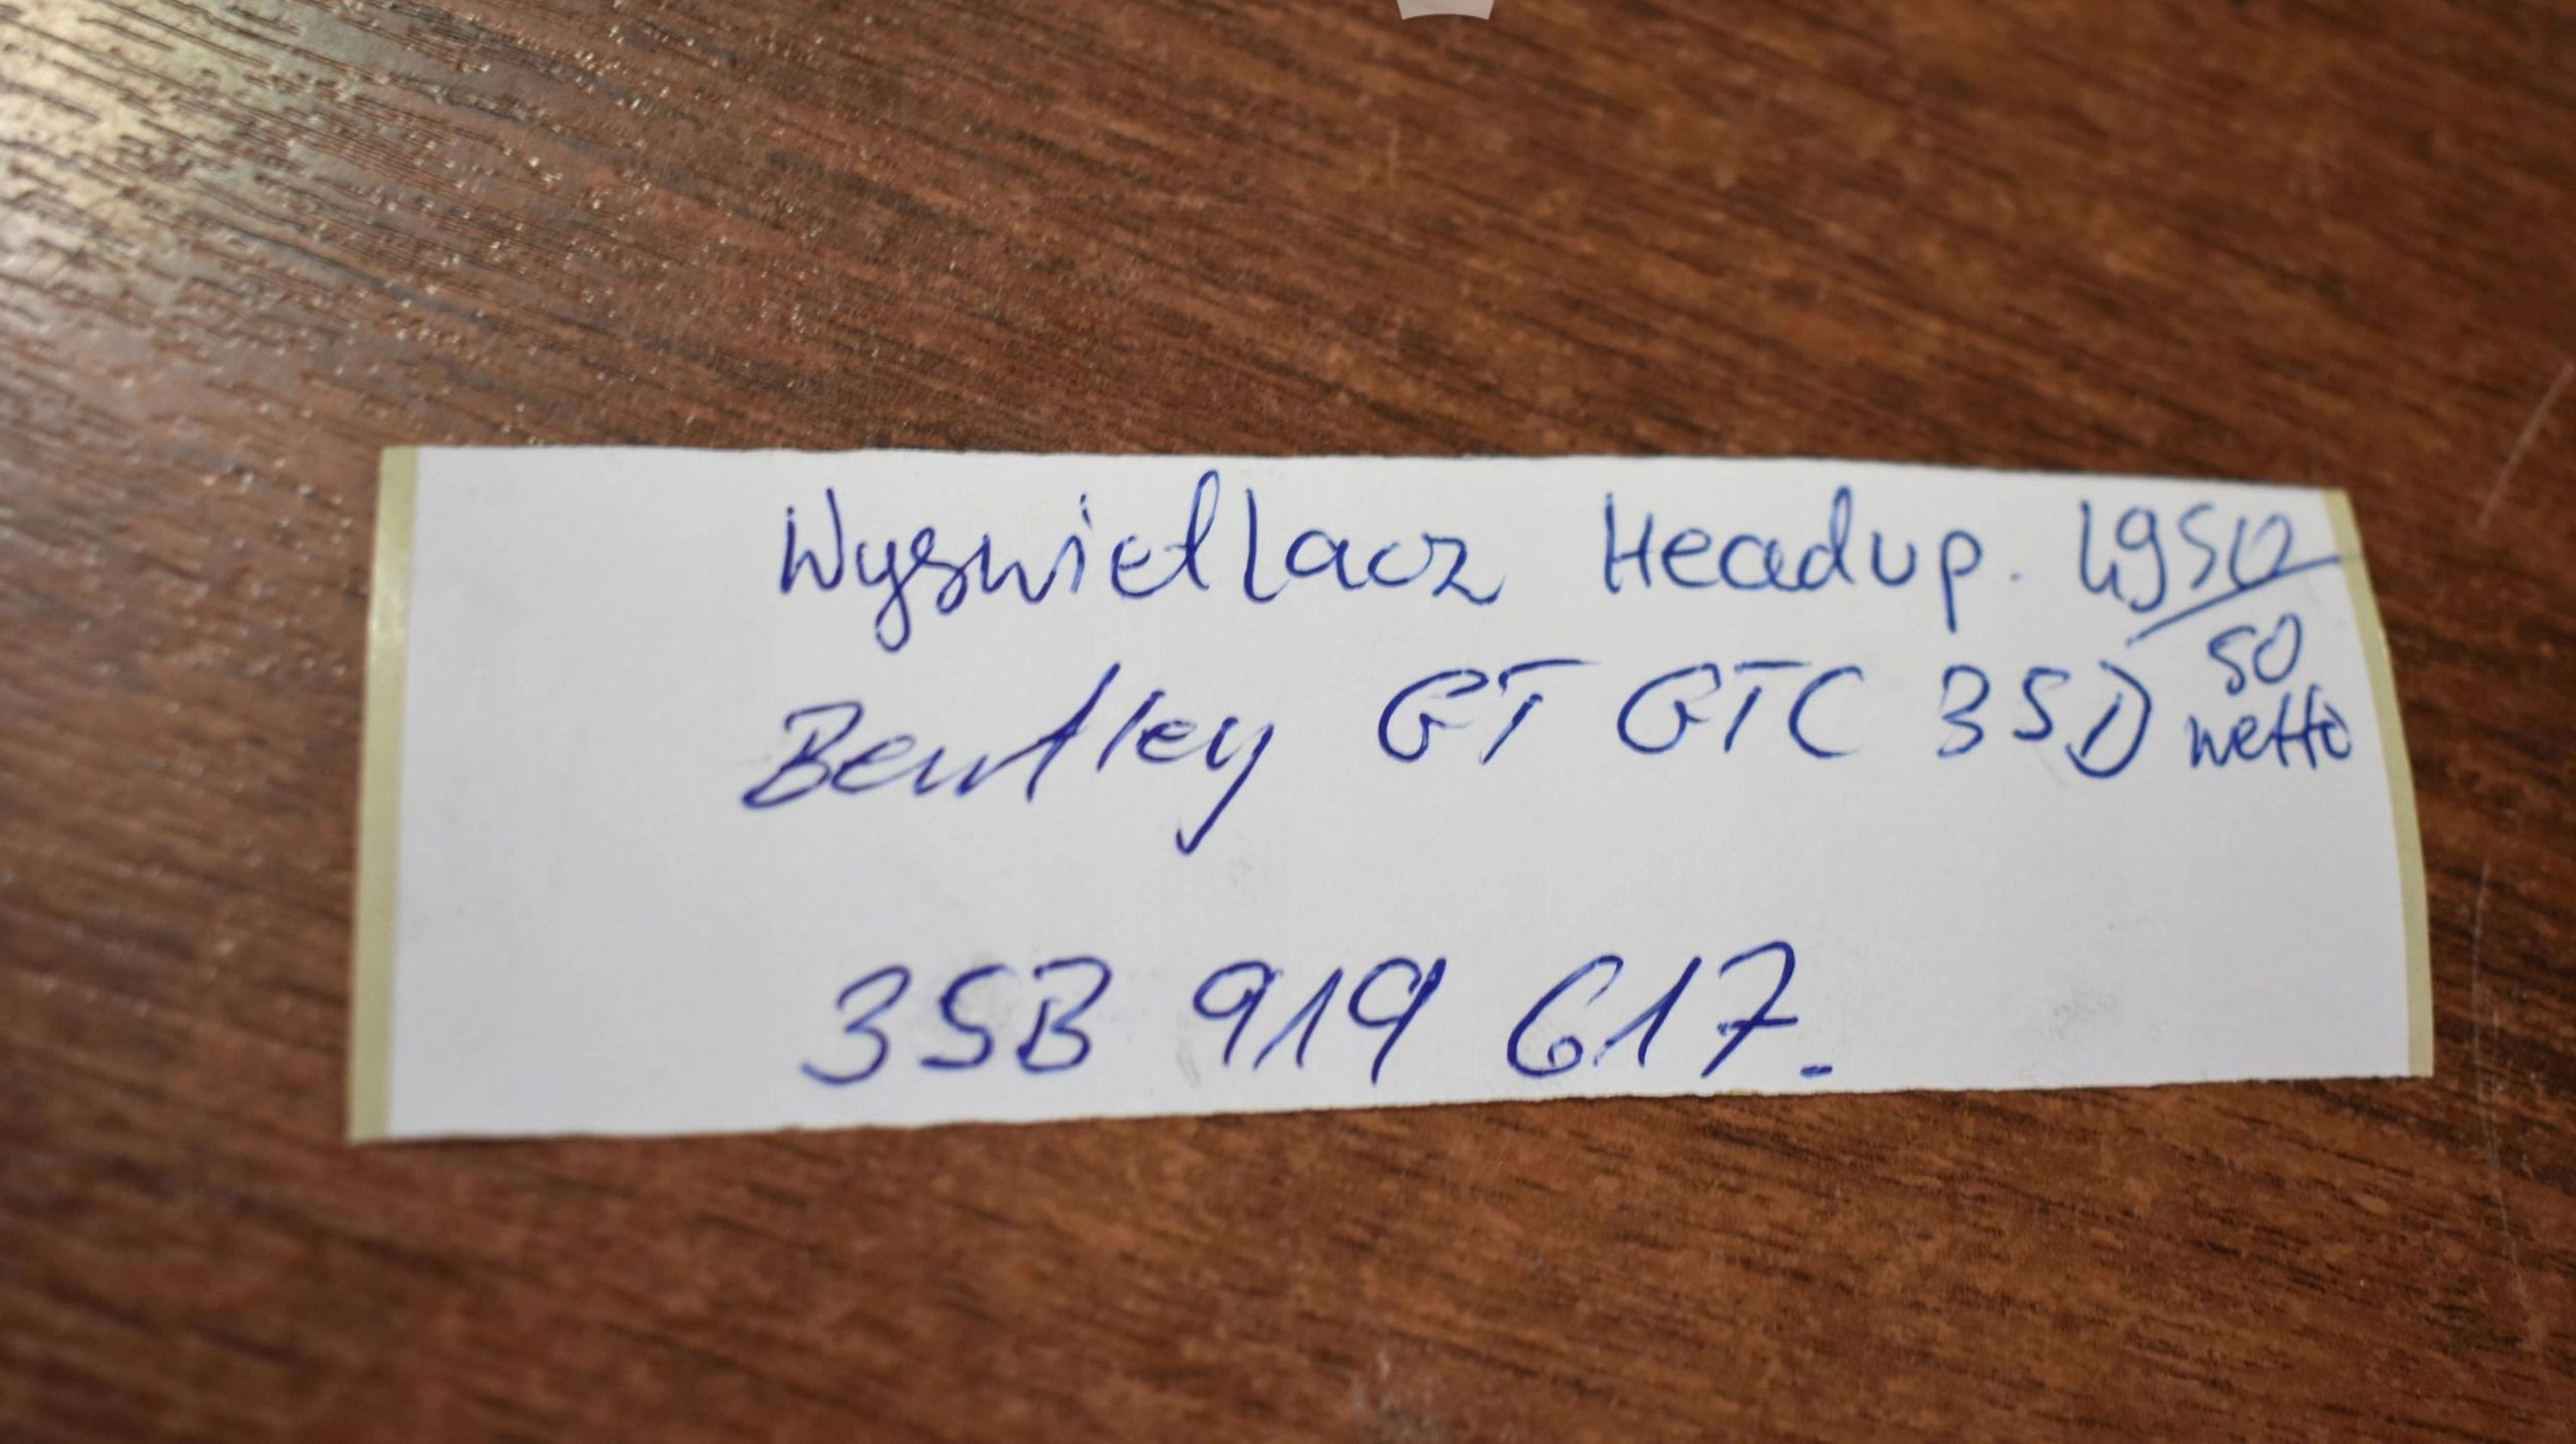 Wyswietlacz Headup. 4950
50
Bentley GT GTC 3SD netto
3SB 919 617.